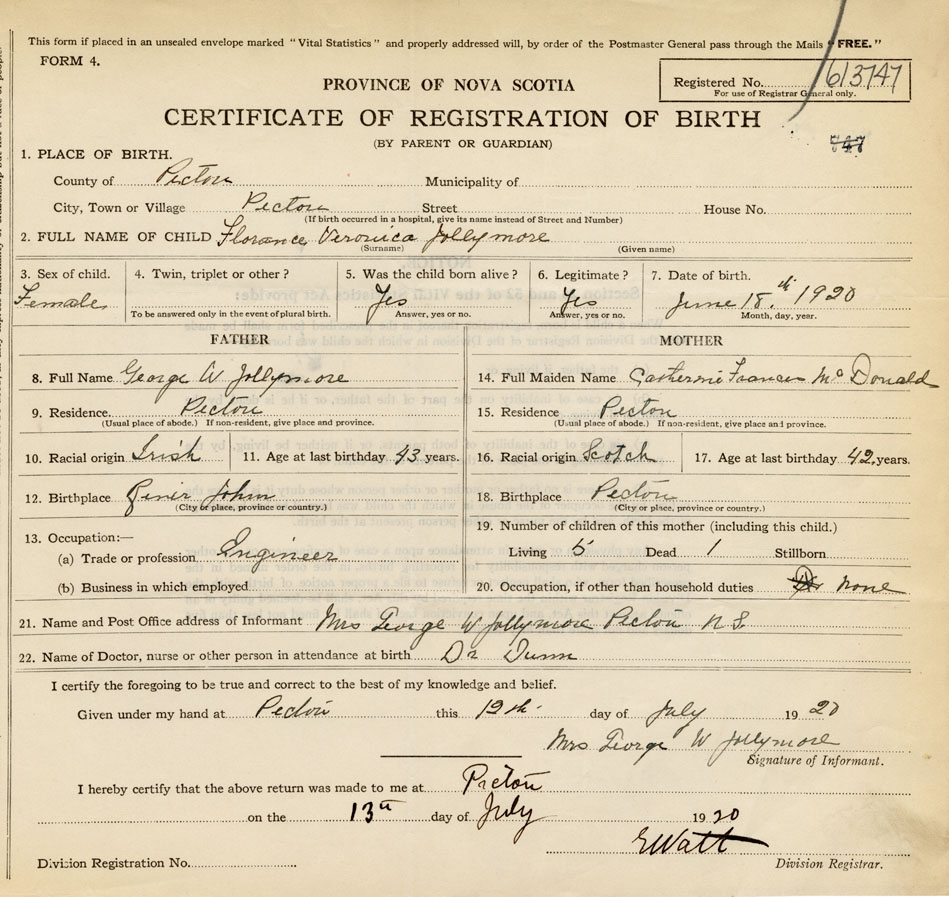 This form if placed in an unsealed envelope marked "Vital Statistics" and properly addressed will, by order of the Postmaster General pass through the Mails "FREE."
FORM 4.
PROVINCE OF NOVA SCOTIA
Registered No. 613747
For use of Registrar General only.
CERTIFICATE OF REGISTRATION OF BIRTH
747
(BY PARENT OR GUARDIAN)
1. PLACE OF BIRTH.
County of Pictou Municipality of
City, Town or Village Pictou Street House No.
(If birth occurred in a hospital, give its name instead of Street and Number)
2. FULL NAME OF CHILD Florance Veronica Jollymore
(Surname) (Given name)
3. Sex of child. 4. Twin, triplet or other? 5. Was the child born alive? 6. Legitimate? 7. Date of birth.
Female Yes Yes June 18th 1920
To be answered only in the event of plural birth. Answer, yes or no. Answer, yes or no. Month, day, year.
FATHER MOTHER
8. Full Name George W Jollymore 14. Full Maiden Name Catherine Frances McDonald
9. Residence. Pictou 15. Residence Pictou
(Usual place of abode.) If non-resident, give place and province. (Usual place of abode.) If non-resident, give place and province.
10. Racial origin Irish 11. Age at last birthday 43 years. 16. Racial origin Scotch 17. Age at last birthday 42 years.
12. Birthplace River John 18. Birthplace Pictou
(City or place, province or country.) (City or place, province or country.)
13. Occupation:— 19. Number of children of this mother (including this child.)
(a) Trade or profession Engineer Living 5 Dead 1 Stillborn
(b) Business in which employed 20. Occupation, if other than household duties none
21. Name and Post Office address of Informant Mrs George W Jollymore Pictou N S.
22. Name of Doctor, nurse or other person in attendance at birth Dr Dunn
I certify the foregoing to be true and correct to the best of my knowledge and belief.
Given under my hand at Pictou this 12th. day of July 1920
Mrs George W Jollymore
Signature of Informant.
I hereby certify that the above return was made to me at Pictou
on the 13th day of July 1920
E Watt
Division Registration No. Division Registrar.